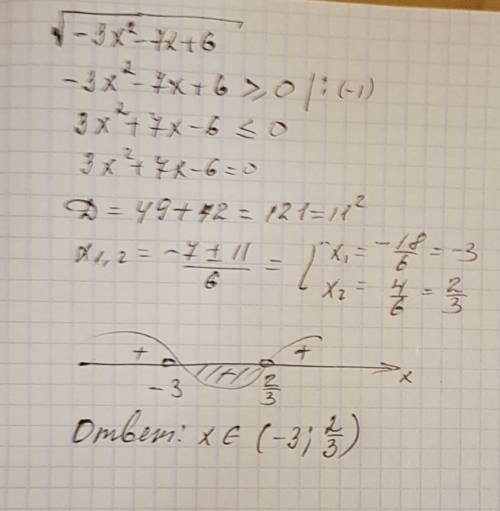 √(-3x²-7x+6)
-3x²-7x+6 ≥ 0 | : (-1)
3x²+7x-6 ≤ 0
3x²+7x-6=0
D = 49+72 = 121 = 11²
x₁,₂ = (-7 ± 11)/6 = [ x₁ = -18/6 = -3
x₂ = 4/6 = 2/3
+ +
-3 2/3 x
Ответ: x ∈ (-3; 2/3)